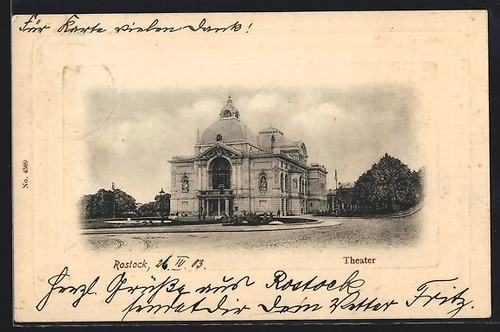 Für Karte vielen Dank!
No. 4569
Rostock, 26. IV. 03.
Theater
Herzl. Grüße aus Rostock
sendet dir Dein Vetter Fritz.